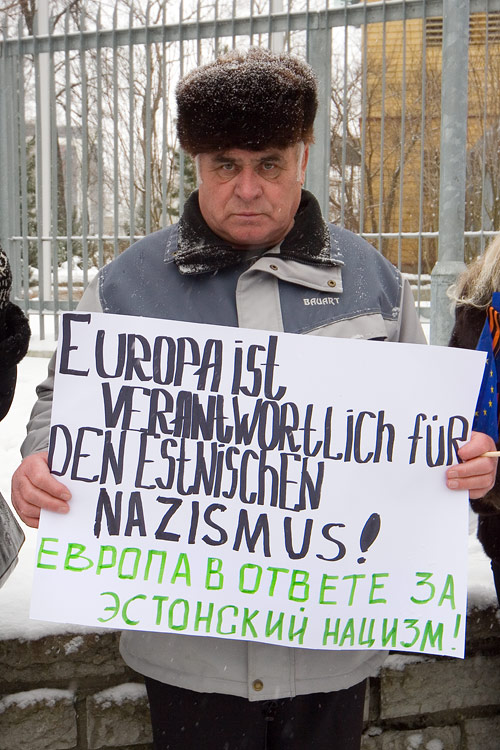 BAUART
EUROPA ist
VERANTWORtLiCh füR
DEN EStNiSCHEN
NAZISMUS!
ЕВРОПА В ОТВЕТЕ ЗА
ЭСТОНСКИЙ НАЦИЗМ!